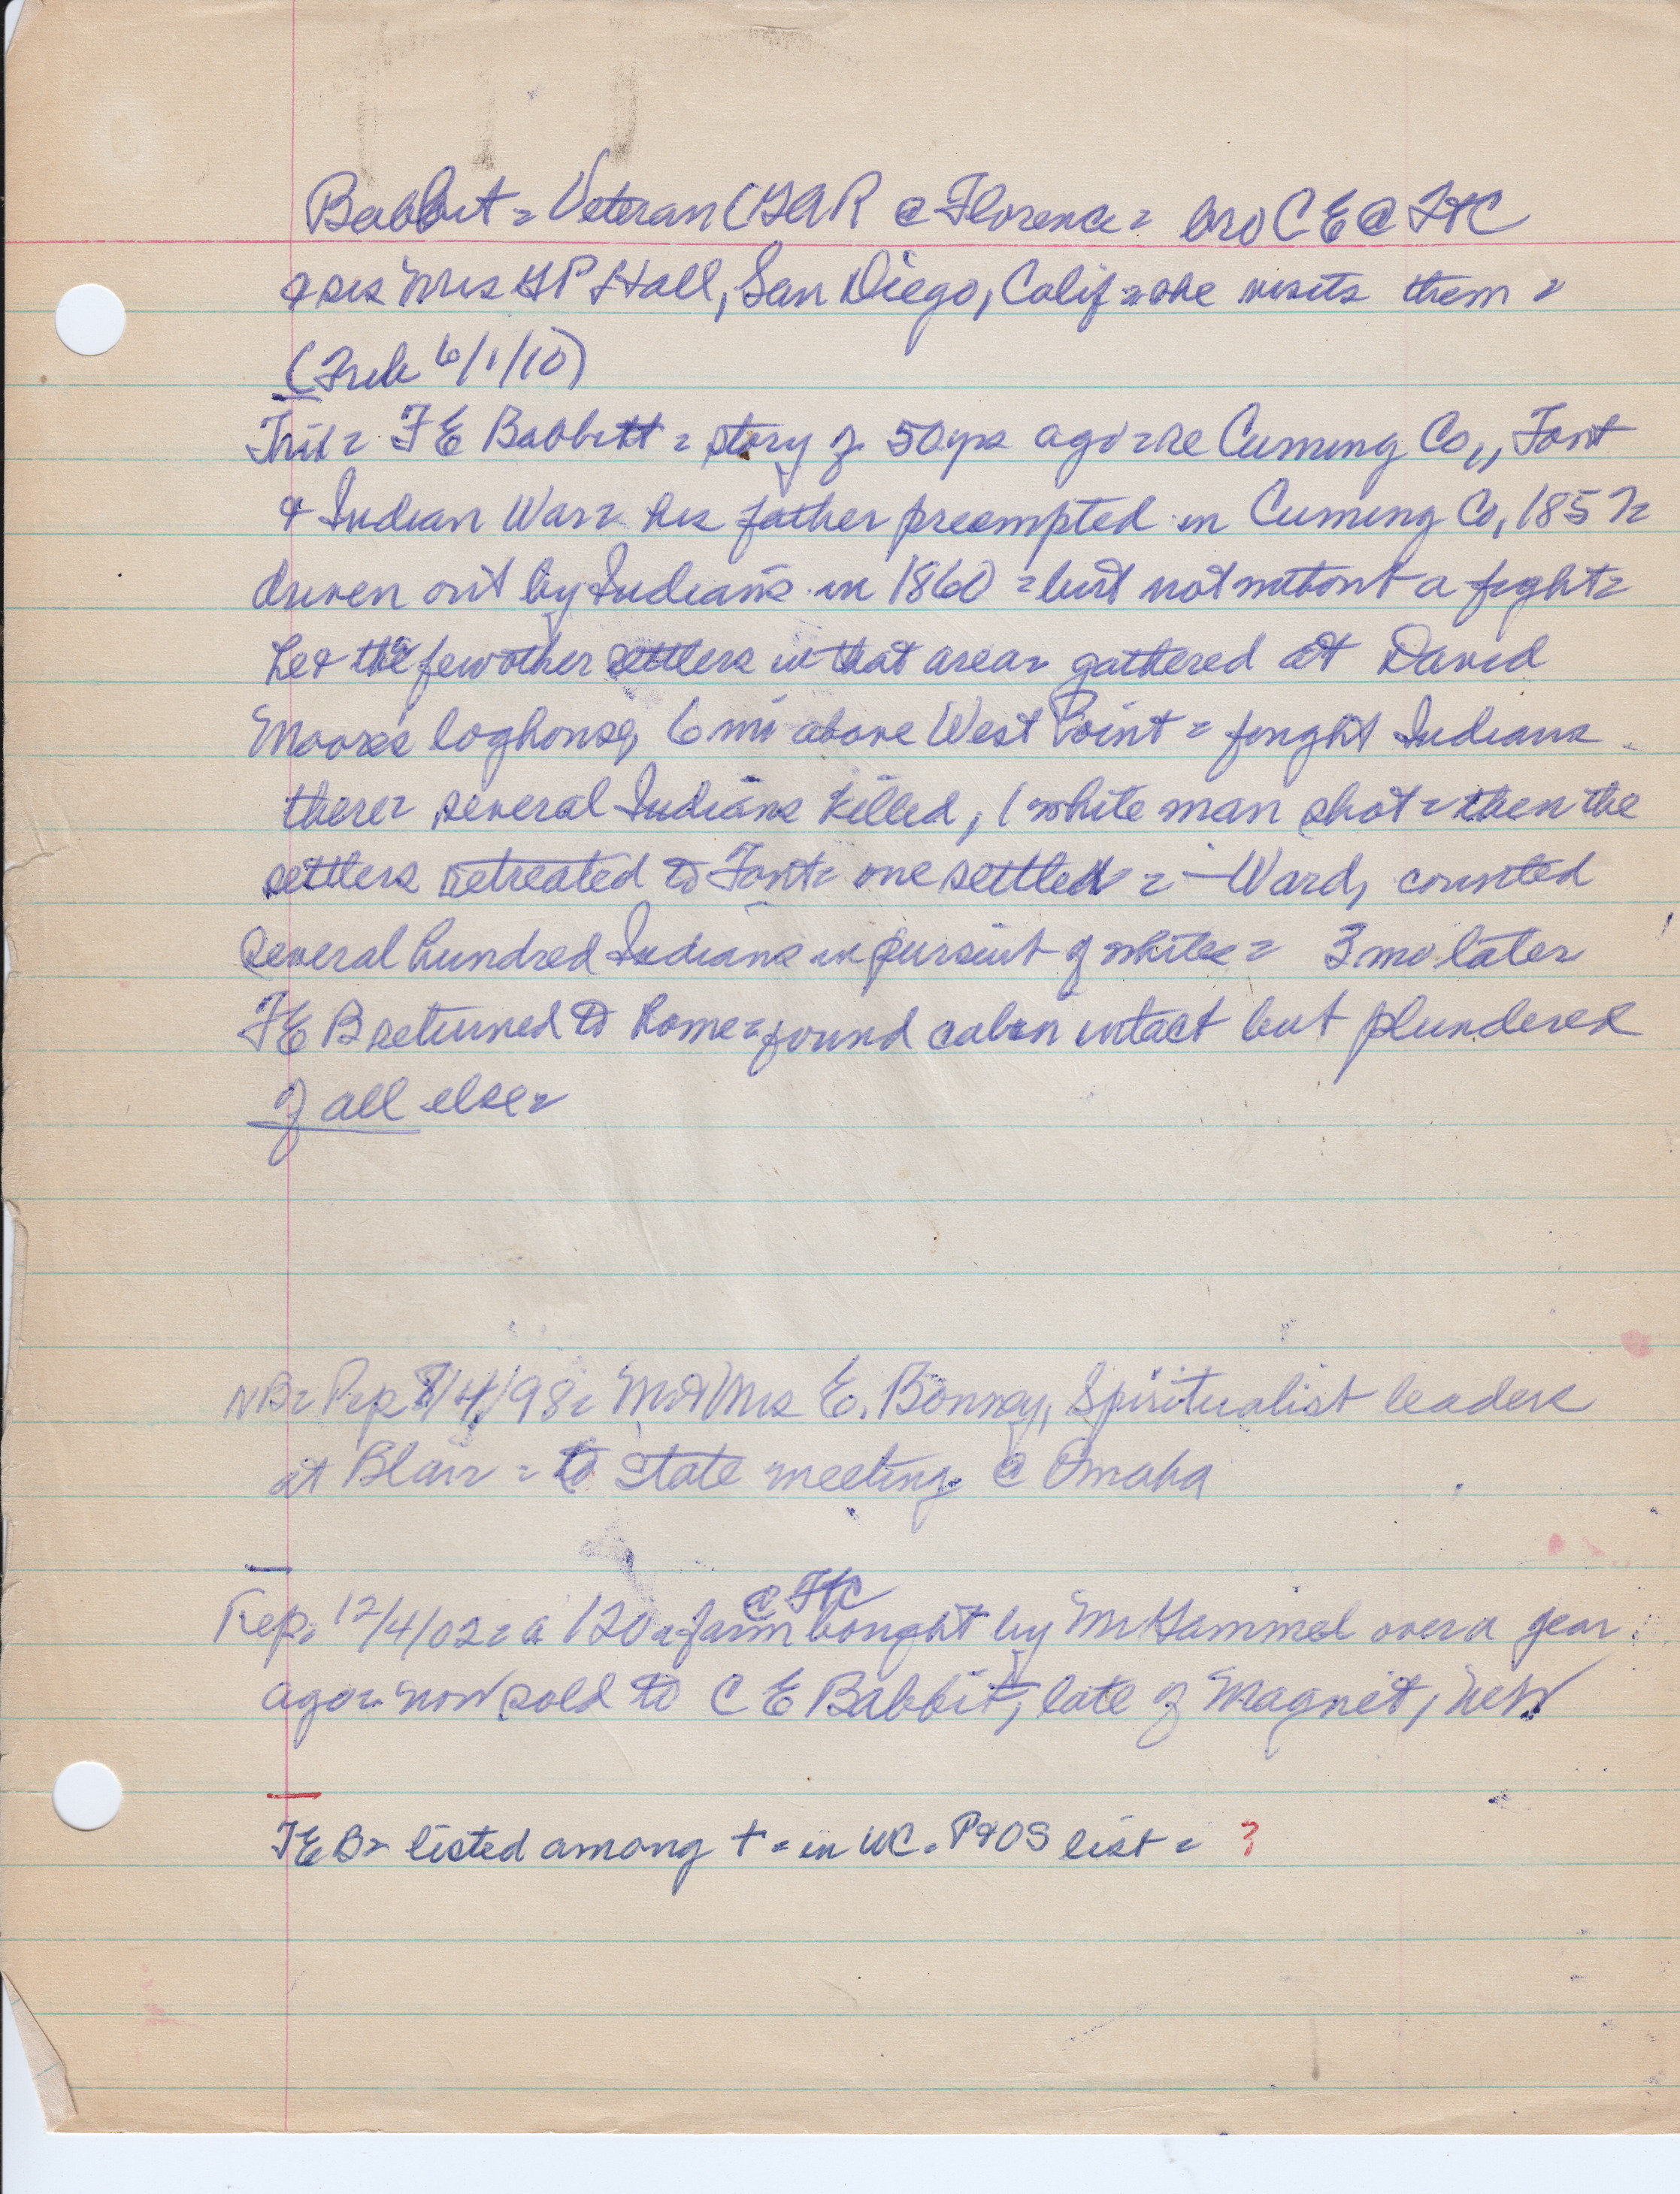 Babbit = Veteran (GAR @ Florence = bro C E @ FtC
& sis Mrs G P Hall, San Diego, Calif = she visits them =
(Trib 6/1/10)
Trib = F E Babbitt = story of 50 yrs ago = re Cuming Co,, Font
& Indian War = his father preempted in Cuming Co, 1857 =
driven out by Indians in 1860 = but not without a fight =
he & the few other settlers in that area = gathered at David
Moore's loghouse, 6 mi above West Point = fought Indians
there = several Indians killed, 1 white man shot = then the
settlers retreated to Font = one settler = – Ward, counted
several hundred Indians in pursuit of whites = 3 mo later
F E B returned to home = found cabin intact but plundered
of all else =
NB = Rep 8/4/98 = Mr & Mrs E. Bonney, Spiritualist leaders
at Blair = to State meeting @ Omaha
@ FtC
Rep. 12/4/02 = a 120 a farm bought by Mr Gammel over a year
ago = now sold to C E Babbit, late of Magnet, Neb
F E B = listed among + = in WC = P&OS list = ?